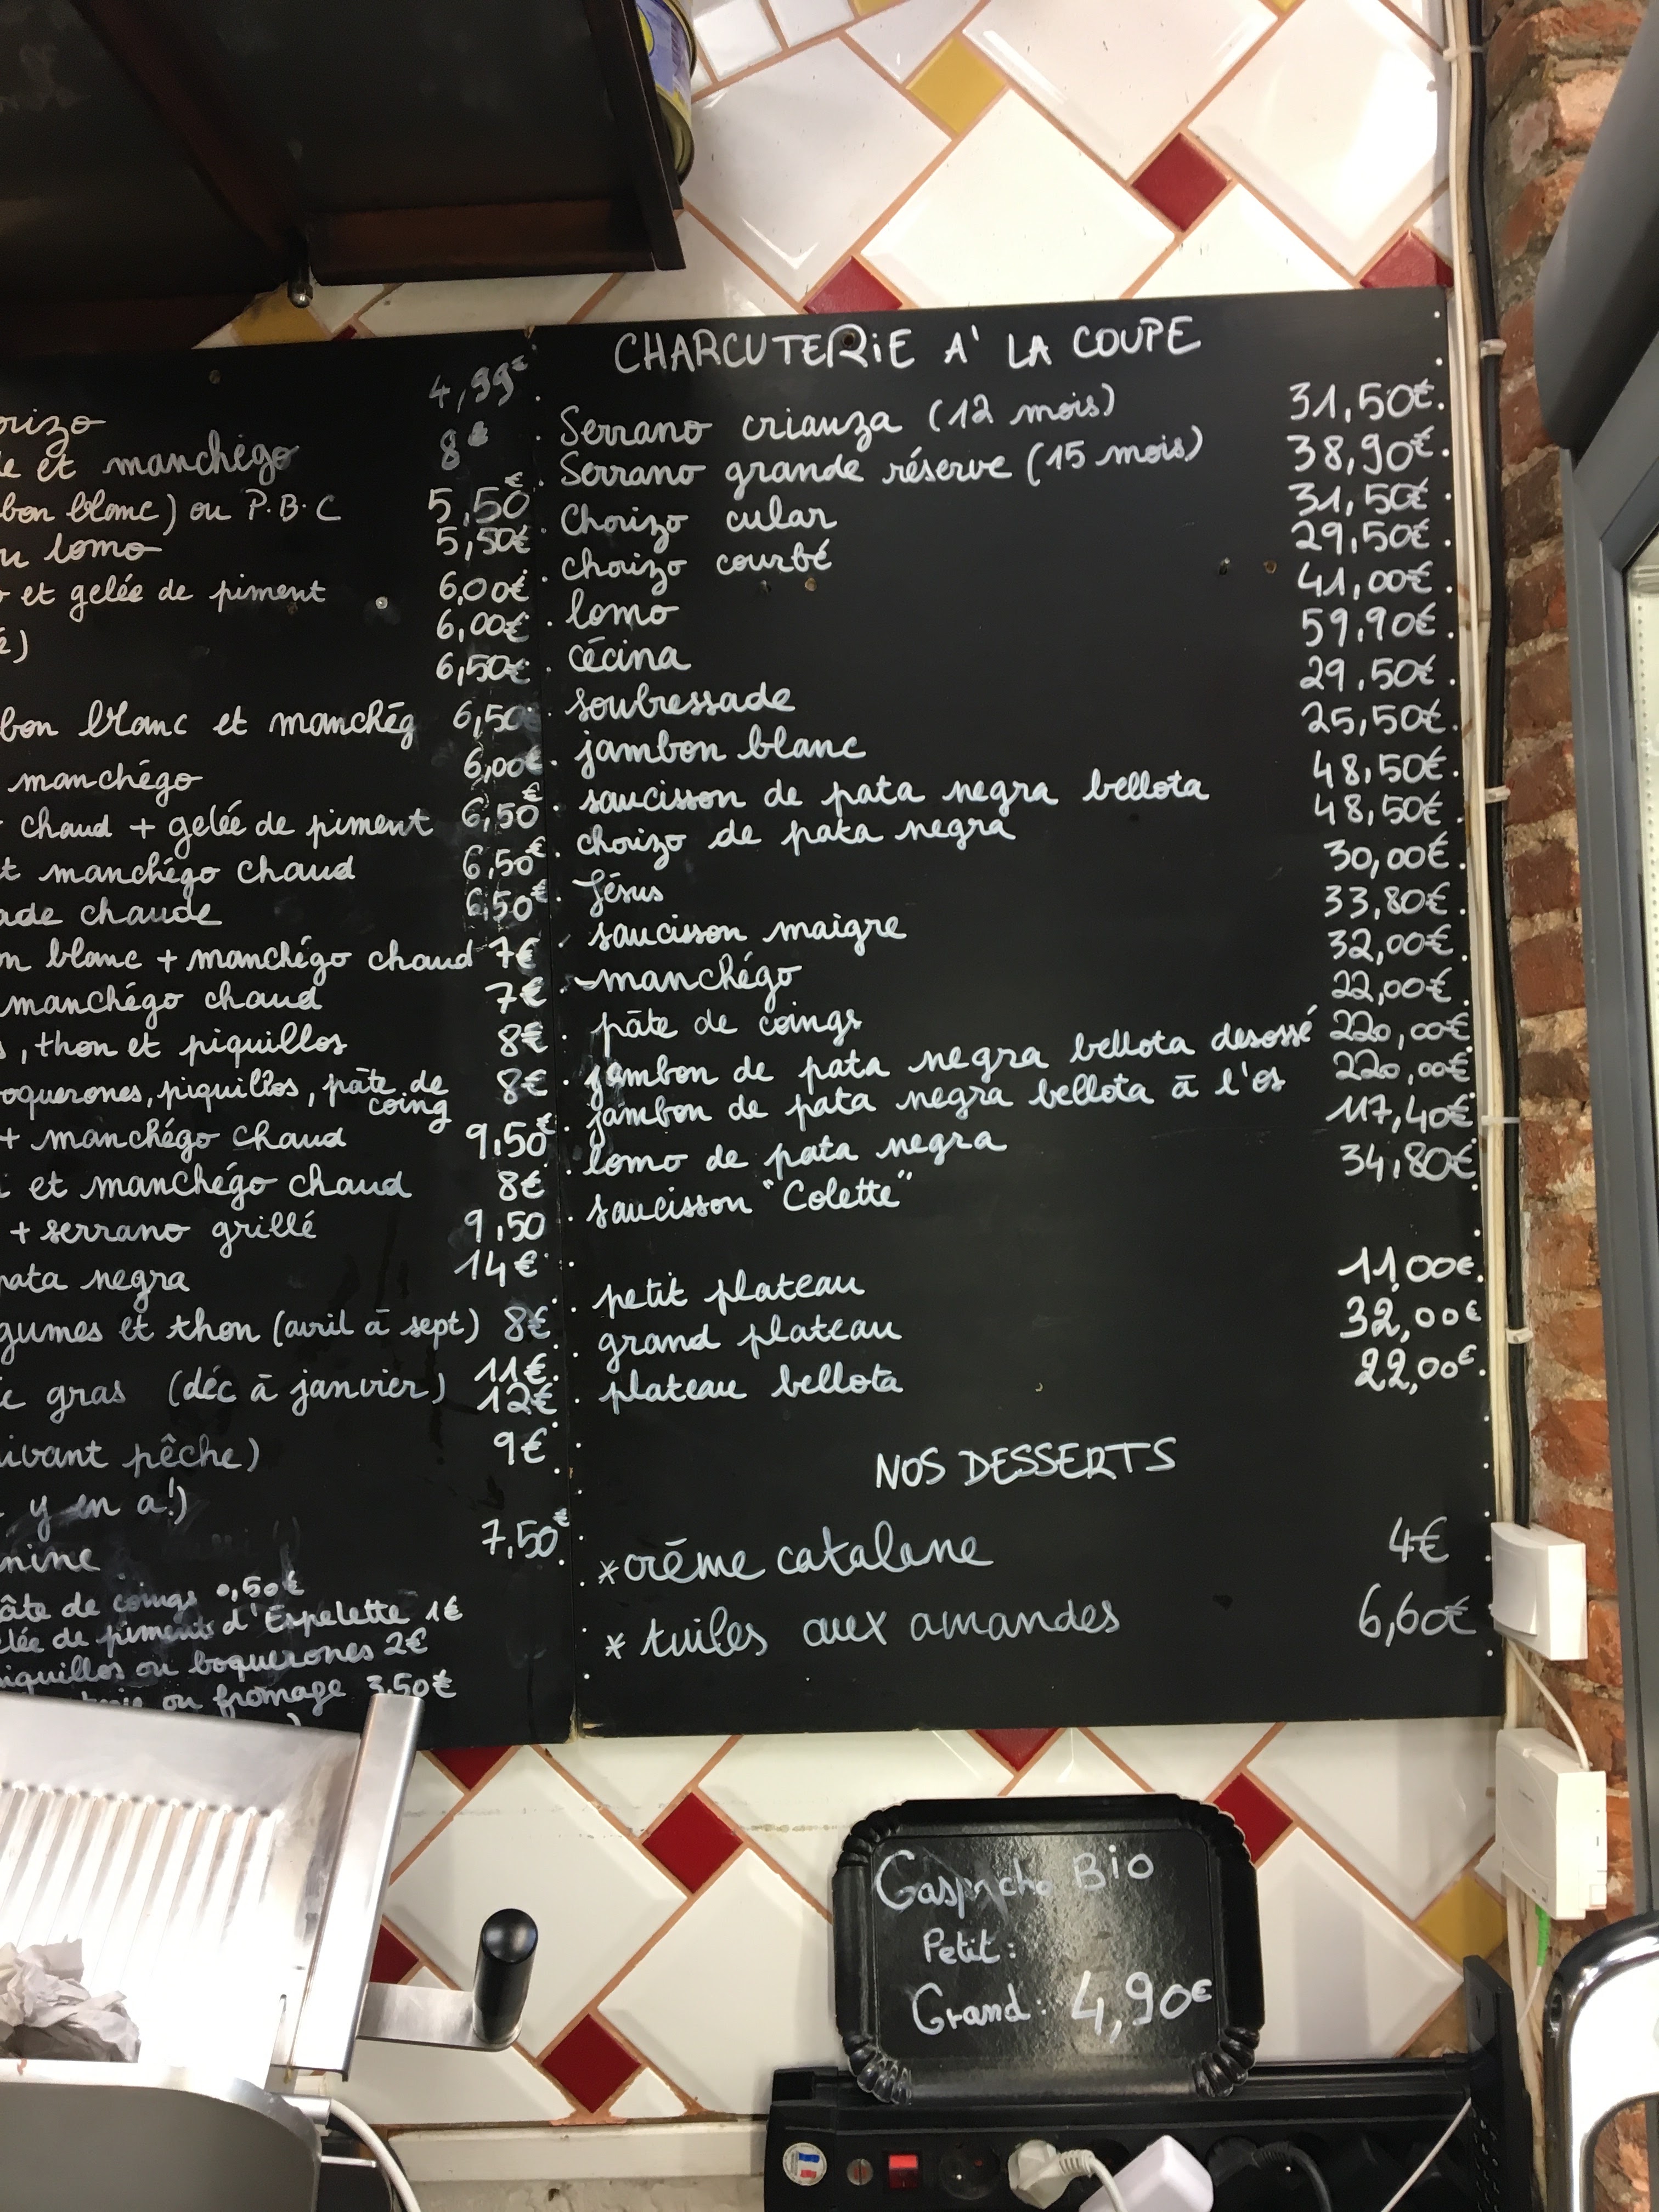 4,99€
orizo
8€
e et manchégo
bon blanc) ou P.B.C 5,50€
u lomo 5,50€
et gelée de piment 6,00€
6,00€
é)
6,50€
bon blanc et manchég 6,50
manchégo 6,00€
chaud + gelée de piment 6,50€
t manchégo chaud 6,50€
ade chaude 6,50€
n blanc + manchégo chaud 7€
manchégo chaud 7€
, thon et piquillos 8€
oquerones, piquillos, pāte de coing 8€
+ manchégo chaud 9,50€
et manchégo chaud 8€
+ serrano grillé 9,50
pata negra 14€
gumes et thon (avril ā sept) 8€
11€
gras (déc ā janvier) 12€
ivant pêche) 9€
y en a!)
nine 7,50€
âte de coings 0,50€
elée de piments d'Espelette 1€
iquillos ou boquerones 2€
ou fromage 3,50€
CHARCUTERIE A' LA COUPE
Serrano crianza (12 mois) 31,50€
Serrano grande réserve (15 mois) 38,90€
Chorizo cular 31,50€
chorizo courbé 29,50€
lomo 41,00€
cécina 59,90€
soubressade 29,50€
jambon blanc 25,50€
saucisson de pata negra bellota 48,50€
chorizo de pata negra 48,50€
Jésus 30,00€
saucisson maigre 33,80€
manchégo 32,00€
pāte de coings 22,00€
jambon de pata negra bellota desossé 220,00€
jambon de pata negra bellota ā l'os 220,00€
lomo de pata negra 117,40€
saucisson "Colette" 34,80€
petit plateau 11,00€
grand plateau 32,00€
plateau bellota 22,00€
NOS DESSERTS
* crēme catalane 4€
* tuiles aux amandes 6,60€
Gaspacho Bio
Petit:
Grand: 4,90€